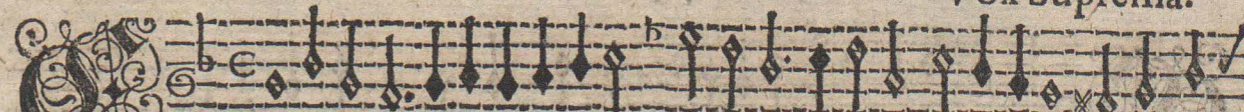 Vox suprema.